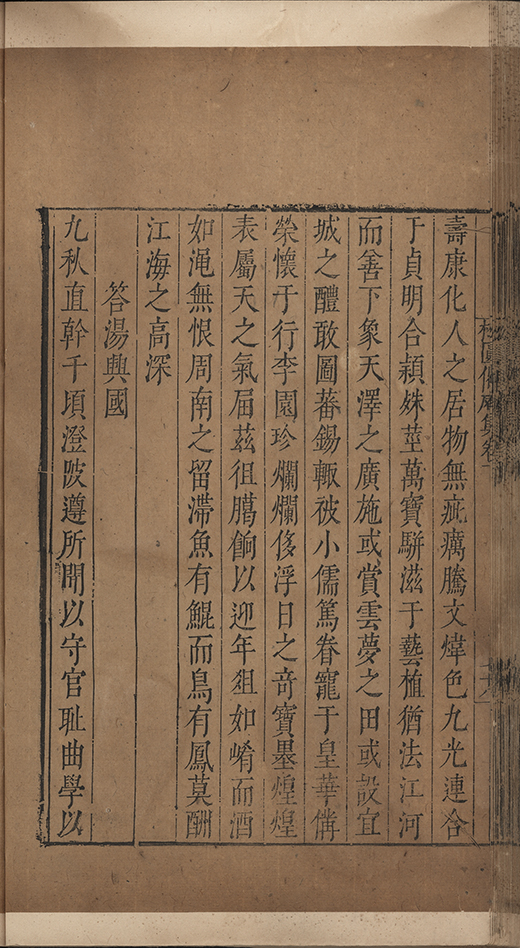 壽康化人之居物無疵癘騰文煒色九光連合
于貞明合穎姝莖萬寶駢滋于藝植猶法江河
而善下象天澤之廣施或賞雲夢之田或設宜
城之醴敢圖蕃錫輙被小儒篤眷寵于皇華偆
榮懷于行李園珍爛爛侈浮日之竒寶墨煌煌
表屬天之氣屆茲徂臈餉以迎年俎如崤而酒
如渑無恨周南之留滯魚有鯤而鳥有鳳莫酬
江海之高深
答湯興國
九秋直幹千頃澄陂遵所聞以守官耻曲學以